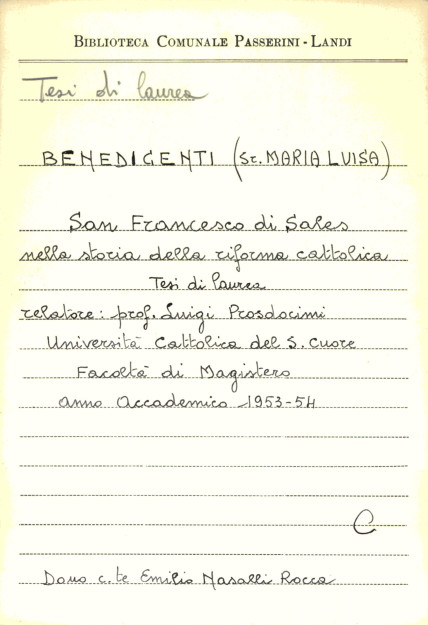 BIBLIOTECA COMUNALE PASSERINI-LANDI
Tesi di laurea
BENEDIGENTI (Sr. MARIA LUISA)
San Francesco di Sales
nella storia della riforma cattolica
Tesi di laurea
relatore: prof. Luigi Prosdocimi
Università Cattolica del S. Cuore
Facoltà di Magistero
anno Accademico 1953-54
C
Dono c.te Emilio Nasalli Rocca